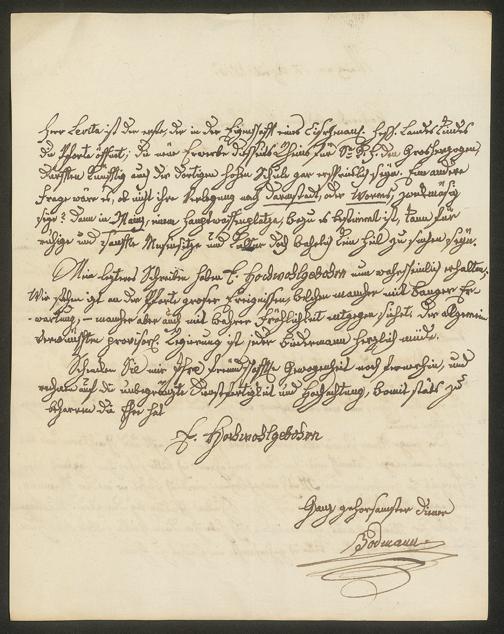 Herr Levita ist der erste, der in der Eigenschaft eines Hess. Landes Kindes
die Pforte öffnet; die neue Erwerbe diesseits Rheins für Se. K. H. den Grosherzogen,
dürften künftig auf der dortigen hohen Schule gar ersprieslich seyn. Eine andere
Frage wäre es, ob nicht ihre Verlegung nach Darmstadt, oder Worms, zweckmäsig
seye? denn in Mainz, einem Hauptwaffenplatze, wozu es bestimmt ist, kann für
ruhige und sanfte Musensitze und doch kein Heil zu hoffen seyn.
Mein letzteres Schreiben haben E. Hochwohlgebohrn nun wahrscheinlich erhalten.
Wir stehen izt an der Pforte groser Ereignisse, welchen mancher mit banger Er-
wartung, – mancher aber auch mit wahrer Fröhlichkeit entgegen siehet. Der allgemein
verwünschten provisor. Regierung ist jeder Biedermann herzlich müde.
Schenken Sie mir Ihre freundschaftliche Gewogenheit noch fernerhin, und
rechnen auf die unbegränzte Dienstfertigkeit und Hochachtung, womit stäts zu
beharren die Ehre hat
E. Hochwohlgebohrn
Ganz gehorsamster Diener
Bodmann